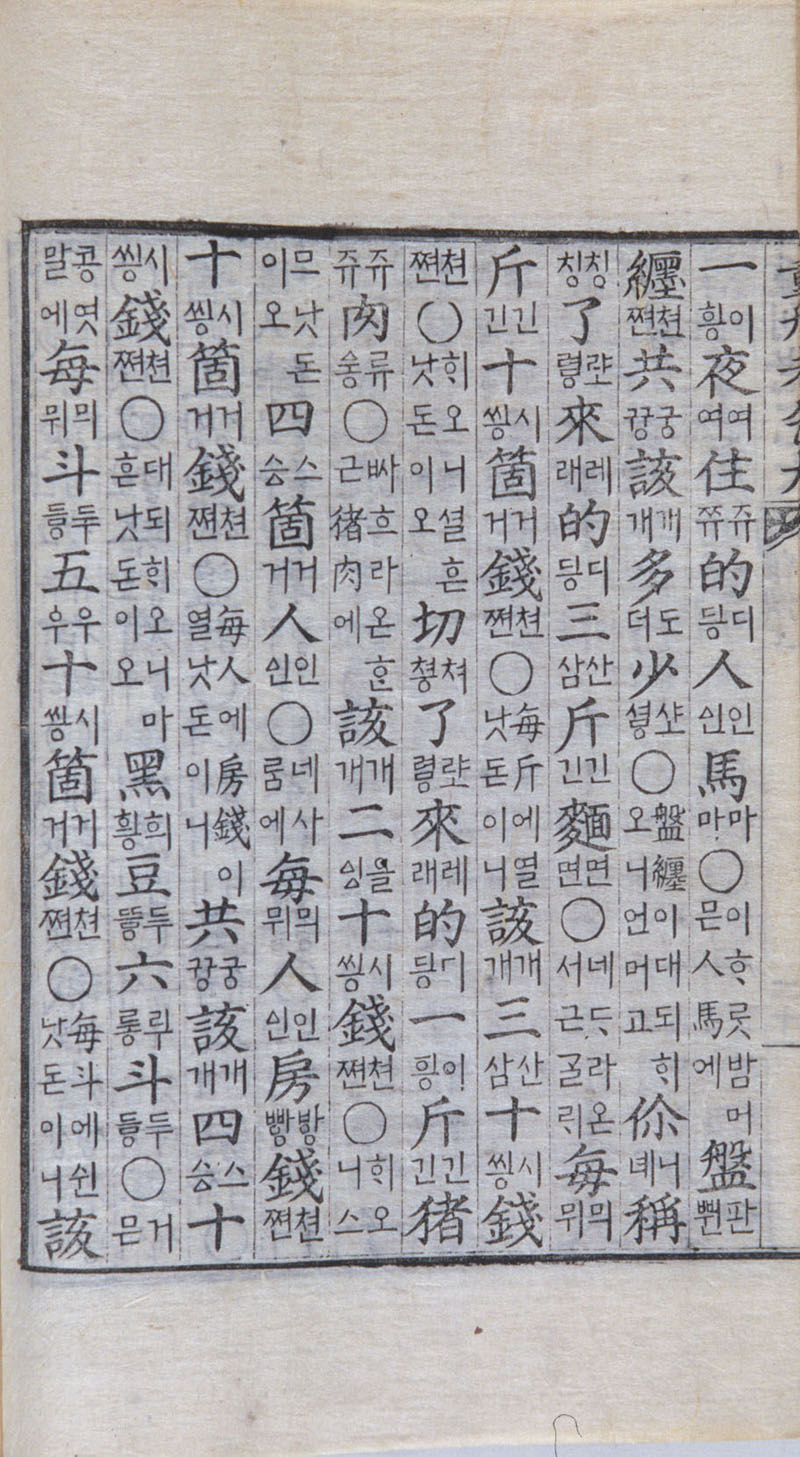 重刊老乞大
一이힁夜여여住쥬쮸的디딍人인ᅀᅵᆫ馬마마○이ᄒᆞ롯밤머믄人馬에盤판뿬
纏쳔쪈共궁꿍該개개多도더少샾셯○盤纏이대되ᄒᆡ오니언머고你니녜稱
칭칭了럎렿來레래的디딍三산삼斤긴긴麵면면○네ᄃᆞ라온서근ᄀᆞᆯᄅᆡ每믜뮈
斤긴긴十시씽箇거거錢쳔쪈○每斤에열낫돈이니該개개三산삼十시씽錢
쳔쪈○ᄒᆡ오니셜흔낫돈이오切쳐쳥了럎렿來레래的디딍一이힁斤긴긴猪
쥬쥬肉류슝○싸흐라온ᄒᆞᆫ근猪肉에該개개二을ᅀᅵᆼ十시씽錢쳔쪈○ᄒᆡ오니스
므낫돈이오四스승箇거거人인ᅀᅵᆫ○네사룸에每믜뮈人인ᅀᅵᆫ房방빵錢쳔쪈
十시씽箇거거錢쳔쪈○每人에房錢이열낫돈이니共궁꿍該개개四스승十
시씽錢쳔쪈○대되ᄒᆡ오니마흔낫돈이오黑희힁豆두뚷六루룽斗두듷○거믄
콩엿말에每믜뮈斗두듷五우우十시씽箇거거錢쳔쪈○每斗에쉰낫돈이니該